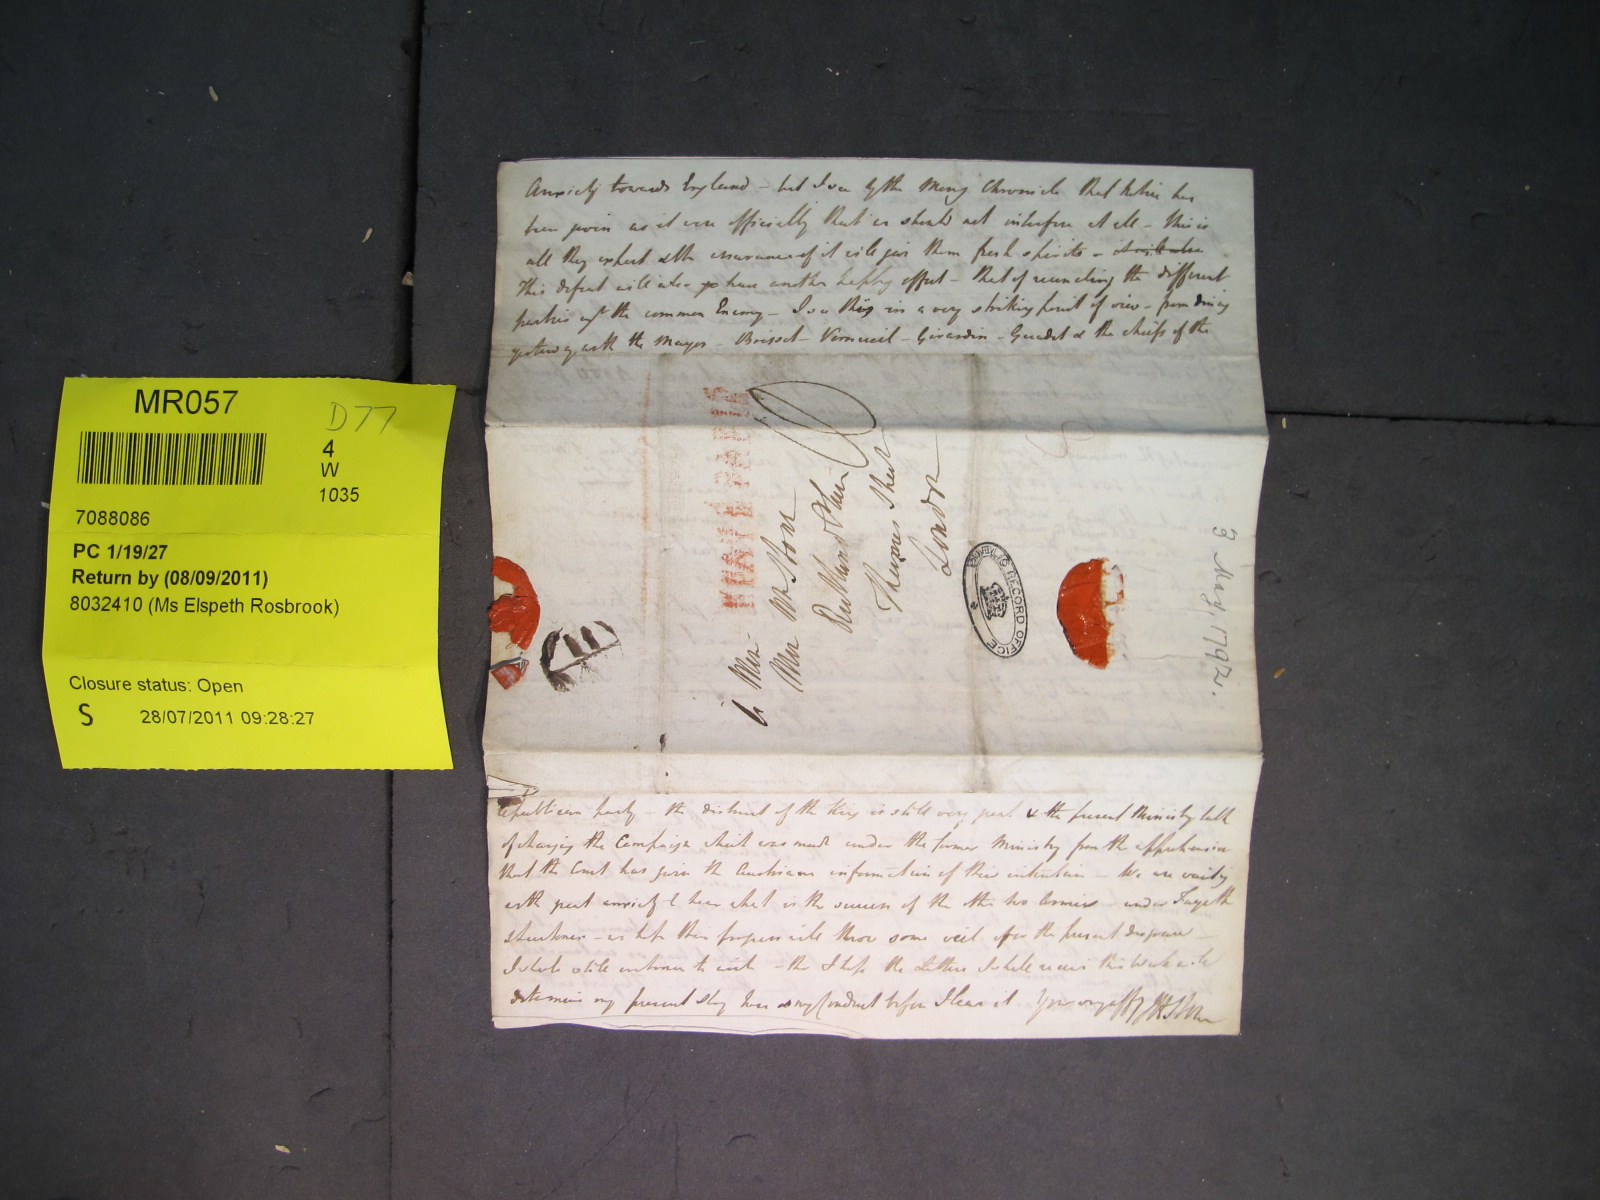 MR057
D77
4
W
1035
7088086
PC 1/19/27
Return by (08/09/2011)
8032410 (Ms Elspeth Rosbrook)
Closure status: Open
S 28/07/2011 09:28:27
Anxiety towards England – but I see by the Morng Chronicle that notice has
been given as it were officially that we should not interfere at all – this is
all they expect & the assurance of it will give them fresh spirits –
This defeat will also have another happy effect – that of reconciling the different
parties agt the common Enemy – I saw this in a very striking point of view – from dining
yesterday with the Mayor – Brissot – Girardin – Guadet & the chiefs of the
Mr Wm Stone
Rutland Place
Thames Street
London
PUBLIC RECORD OFFICE
3 May, 1792.
republican party – the distrust of the King is still very great & the present Ministry talk
of changing the Campaign which was made under the former Ministry from the apprehension
that the Court has given the Austrians information of their intentions – We are waiting
with great anxiety to hear what is the success of the other two armies – under Fayette
& Luckner – we hope their progress will throw some veil over the present disgrace –
I shall still continue to write – tho I hope the Letters I shall receive this Week will
determine my present stay here & my Conduct before I leave it. Your very affy JHStone